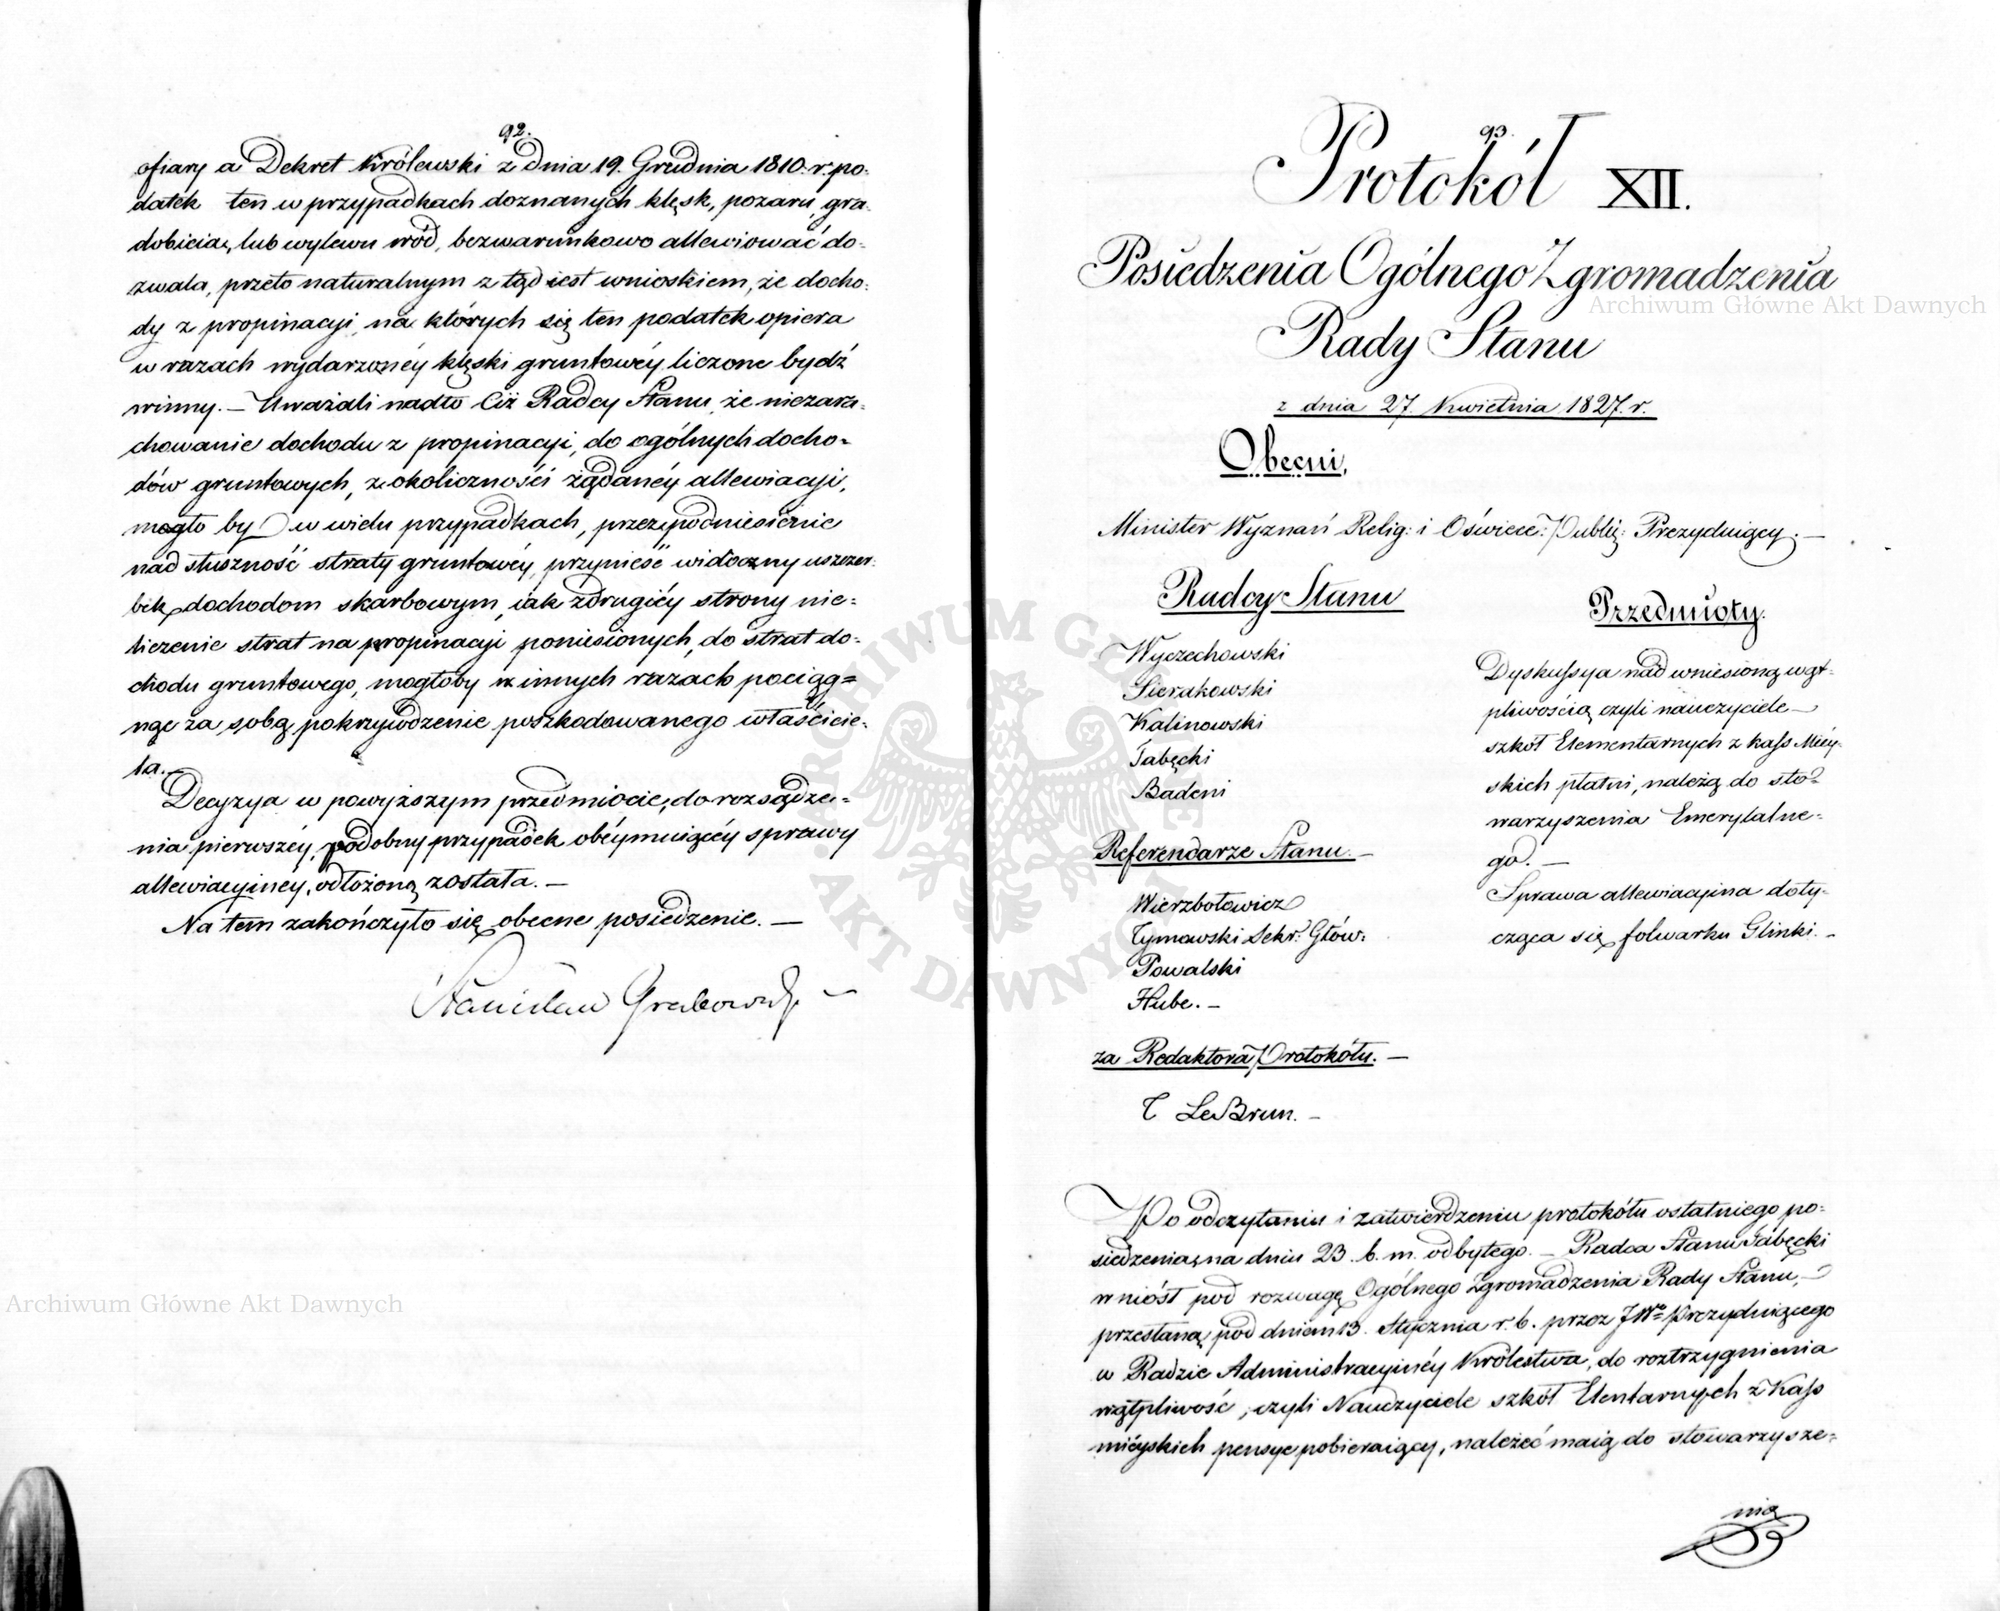 92.
ofiary a Dekret Królewski z dnia 19. Grudnia 1810. r. po-
datek ten w przypadkach doznanych klęsk, pożaru, gra-
dobicia, lub wylewu wód, bezwarunkowo allewiować do-
zwala, przeto naturalnym z tąd iest wnioskiem, że docho-
dy z propinacyi, na których się ten podatek opiera
w razach wydarzonéy klęski gruntowéy liczone bydź
winny. — Uważali nadto Ciż Radcy Stanu, że niezara-
chowanie dochodu z propinacyi, do ogólnych docho-
dów gruntowych, z okoliczności żądanéy allewiacyi,
mogło by w wielu przypadkach, przez podniesienie
nad słuszność straty gruntowéy, przynieść widoczny uszczer-
bek dochodom skarbowym, iak z drugiéy strony nie-
liczenie strat na propinacyi poniesionych, do strat do-
chodu gruntowego, mogłoby w innych razach pociąg-
nąć za sobą pokrzywdzenie poszkodowanego właścicie-
la.
Decyzya w powyższym przedmiocie, do rozsądze-
nia pierwszéy, podobny przypadek obéymuiącéy sprawy
allewiacyinéy, odłożoną została. —
Na tem zakończyło się obecne posiedzenie. —
Stanisław Grabowski —
93.
Protokół XII.
Posiedzenia Ogólnego Zgromadzenia
Rady Stanu
z dnia 27. Kwietnia 1827. r.
Obecni,
Minister Wyznań Relig: i Oświece: Publiz: Prezyduiący. —
Radcy Stanu
Wyczechowski
Sierakowski
Kalinowski
Tabęcki
Badeni
Referendarze Stanu. —
Wierzbołowicz
Tymowski Sekr: Głów:
Powalski
Hube. —
za Redaktora Protokółu. —
T LeBrun. —
Przedmioty.
Dyskussya nad wniesioną wąt-
pliwością czyli nauczyciele
szkół Elementarnych z kass Miéy-
skich płatni, należą do sto-
warzyszenia Emerytalne-
go. —
Sprawa allewiacyina doty-
cząca się folwarku Glinki. —
Po odczytaniu i zatwierdzeniu protokółu ostatniego po-
siedzenia, na dniu 23. b. m. odbytego. — Radca Stanu Tabęcki
wniósł pod rozwagę Ogólnego Zgromadzenia Rady Stanu, —
przesłaną pod dniem 13. Stycznia r. b. przez JWo Prezyduiącego
w Radzie Administracyinéy Królestwa, do roztrzygnienia
wątpliwość, czyli Nauczyciele szkół Elentarnych z Kass
miéyskich pensye pobieraiący, należeć maią do stowarzysze-
nia
Archiwum Główne Akt Dawnych
Archiwum Główne Akt Dawnych
ARCHIWUM GŁÓWNE AKT DAWNYCH